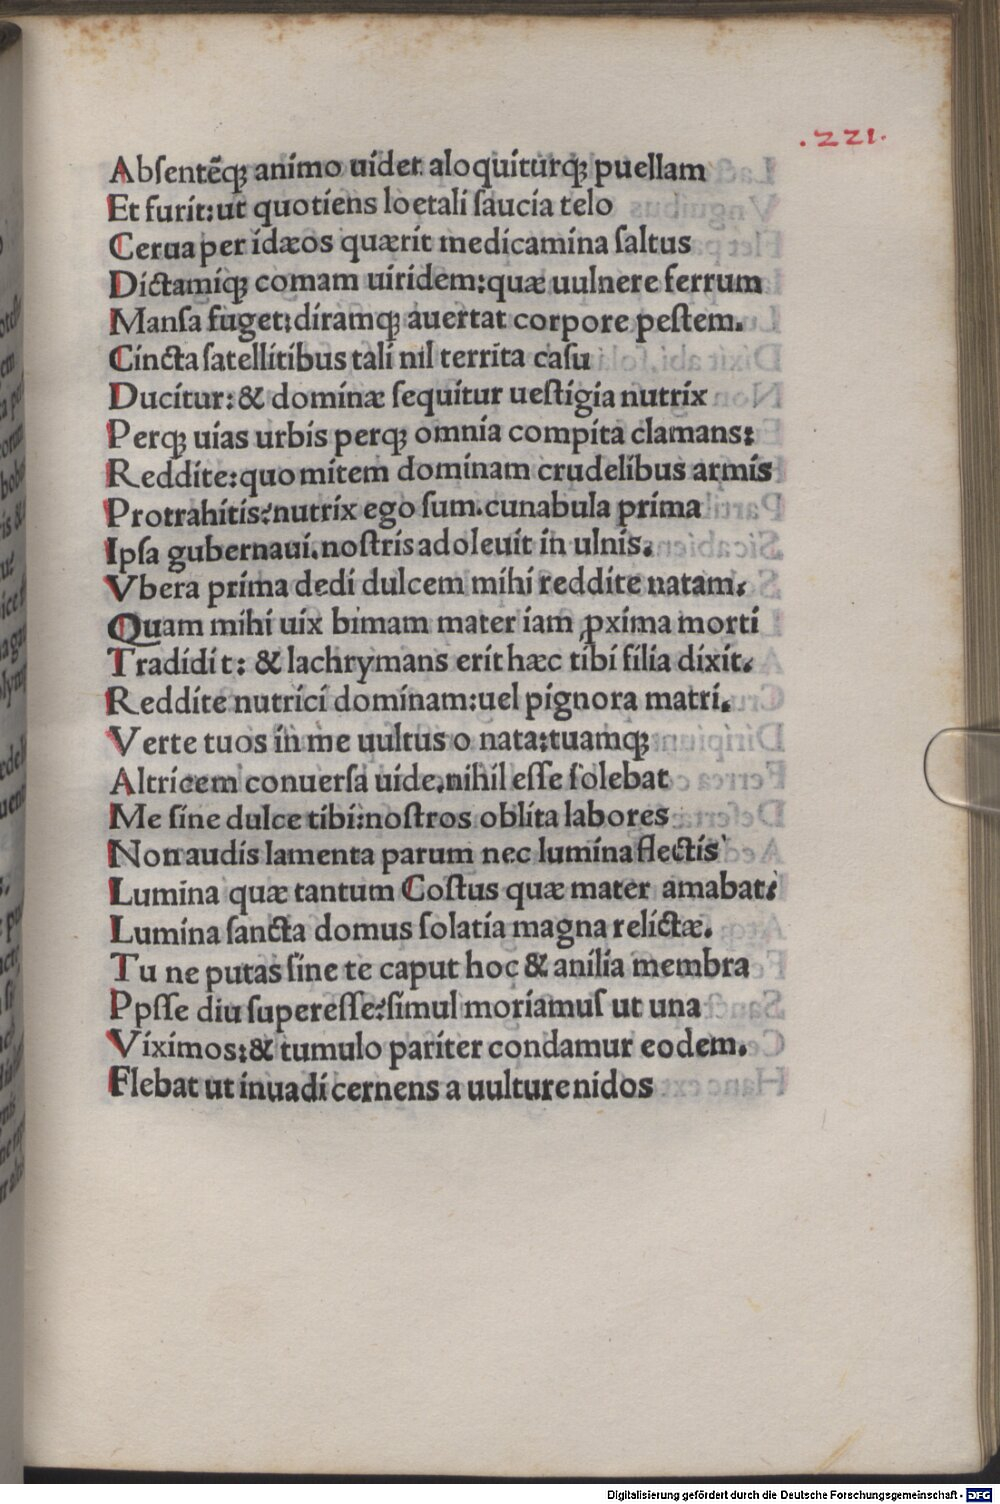 .221.
Abſentēqꝫ animo uidet aloquiturqꝫ puellam
Et furit:ut quotiens loetali ſaucia telo
Cerua per idæos quærit medicamina ſaltus
Dictamiqꝫ comam uiridem:quæ uulnere ferrum
Manſa fuget:diramqꝫ auertat corpore peſtem.
Cincta ſatellitibus tali nil territa caſu
Ducitur:& dominæ ſequitur ueſtigia nutrix
Perqꝫ uias urbis perqꝫ omnia compita clamans:
Reddite:quo mitem dominam crudelibus armis
Protrahitis?nutrix ego ſum.cunabula prima
Ipſa gubernaui.noſtris adoleuit in ulnis.
Vbera prima dedi dulcem mihi reddite natam.
Quam mihi uix bimam mater iam ꝓxima morti
Tradidit: & lachrymans erit hæc tibi filia dixit.
Reddite nutrici dominam:uel pignora matri.
Verte tuos in me uultus o nata:tuamqꝫ
Altricem conuerſa uide.nihil eſſe ſolebat
Me ſine dulce tibi:noſtros oblita labores
Non audis lamenta parum nec lumina flectis
Lumina quæ tantum Coſtus quæ mater amabat?
Lumina ſancta domus ſolatia magna relictæ.
Tu ne putas ſine te caput hoc & anilia membra
Ppſſe diu ſupereſſe?ſimul moriamuſ ut una
Viximos:& tumulo pariter condamur eodem.
Flebat ut inuadi cernens a uulture nidos
Digitalisierung gefördert durch die Deutsche Forschungsgemeinschaft - DFG